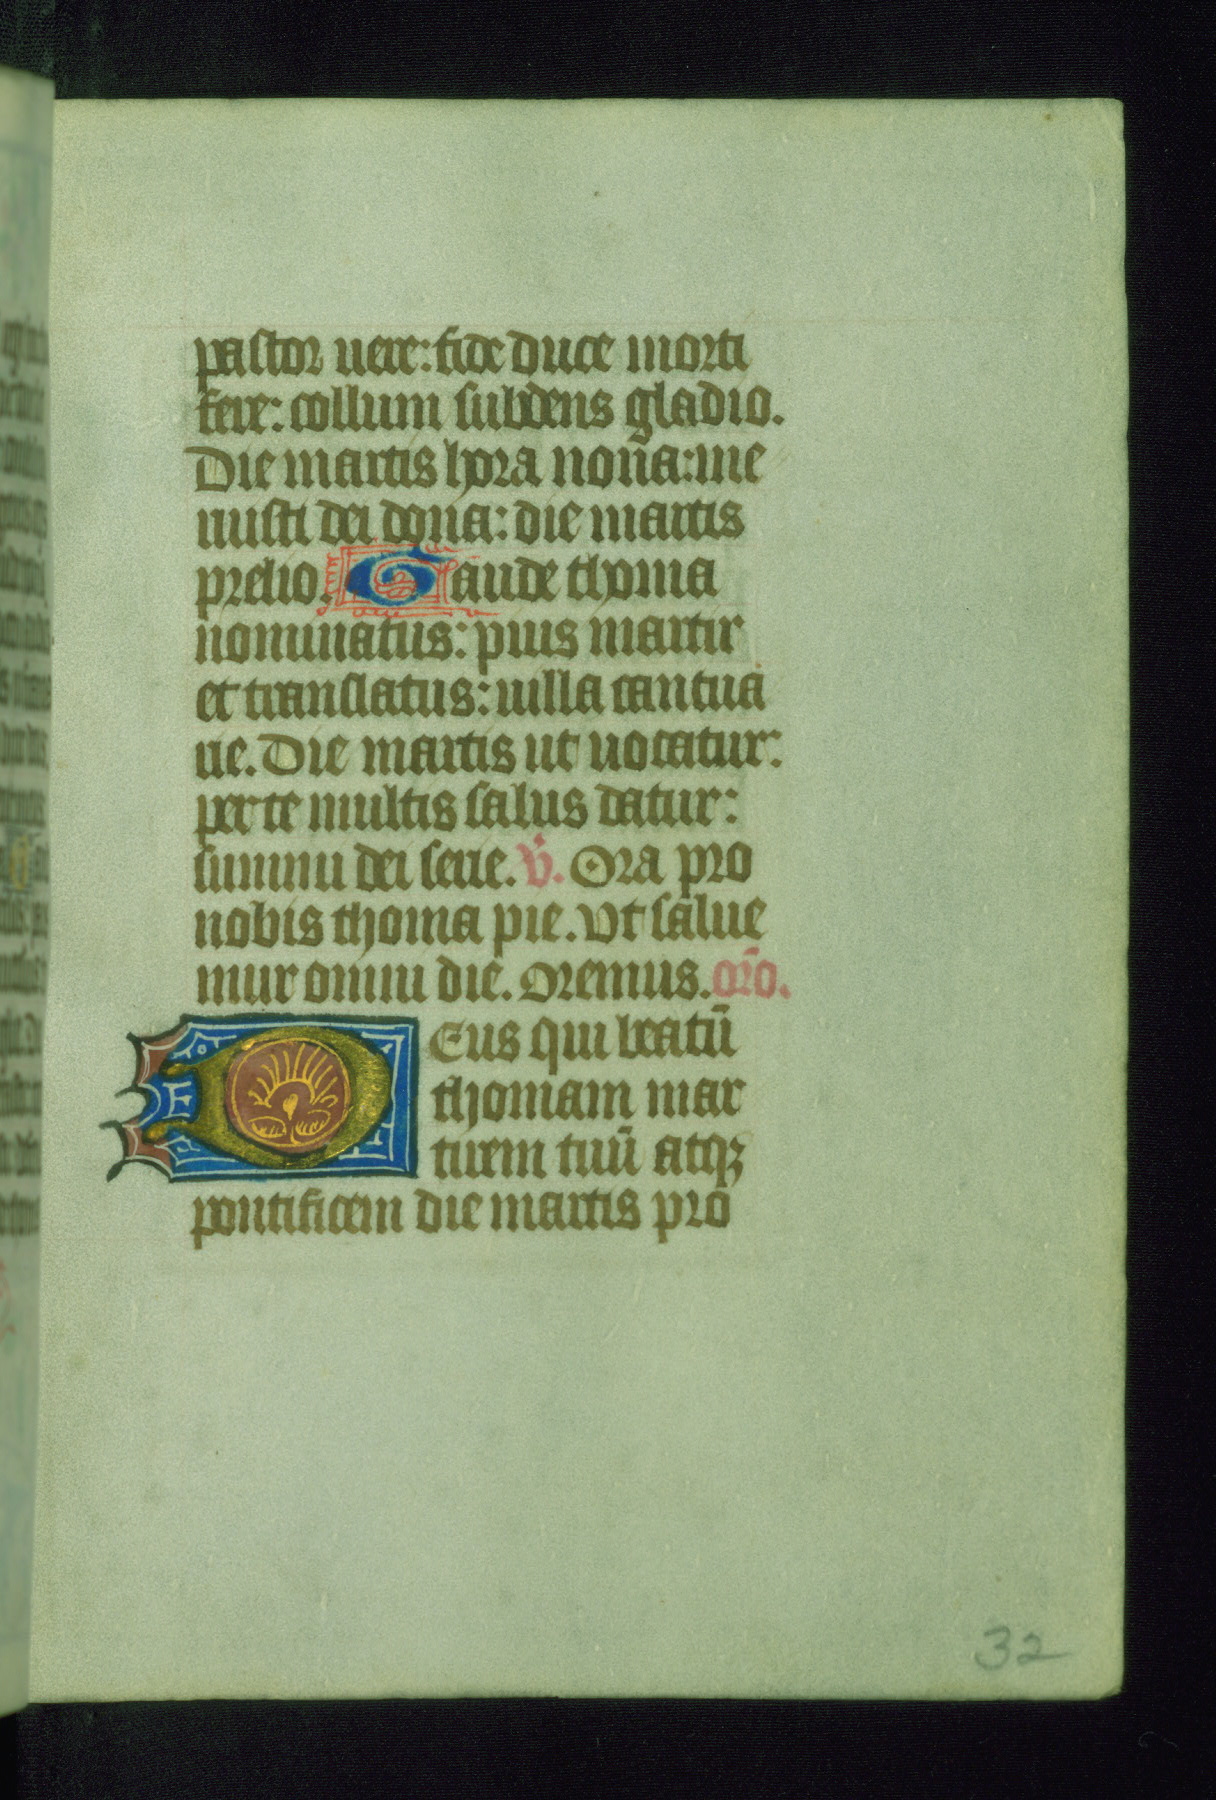 pastor uere: fide duce morti
fere: collum subdens gladio.
Die martis hora nona: me
nusti dei dona: die martis
prelio. Gaude thoma
nominatus: pius martir
et translatus: uilla cantua
rie. Die martis ut uocatur:
per te multis salus datur:
summi dei serue. v̄. Ora pro
nobis thoma pie. Vt salue
mur omni die. Oremus. orō.
Deus qui beatū
thomam mar
tirem tuū atqꝫ
pontificem die martis pro
32